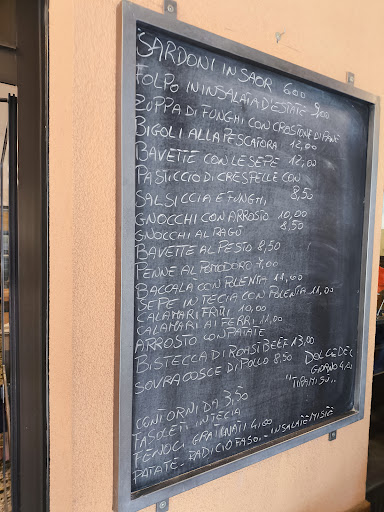 SARDONI IN SAOR 6,00
FOLPO IN INSALATA D'ESTATE 9,00
ZUPPA DI FUNGHI CON CROSTONE DI PANE
BIGOLI ALLA PESCATORA 12,00
BAVETTE CON LE SEPE 12,00
PASTICCIO DI CRESPELLE CON
SALSICCIA E FUNGHI 8,50
GNOCCHI CON ARROSTO 10,00
GNOCCHI AL RAGÙ 8,50
BAVETTE AL PESTO 8,50
PENNE AL POMODORO 7,00
BACCALA CON POLENTA 11,00
SEPE IN TECIA CON POLENTA 11,00
CALAMARI FRITTI 10,00
CALAMARI AI FERRI 11,00
ARROSTO CON PATATE
BISTECCA DI ROASTBEEF 13,00
SOVRACOSCE DI POLLO 8,50
DOLCE DEL
GIORNO
"TIRAMISÙ"
CONTORNI DA 3,50
FASOLETI IN TECIA
FENOCI GRATINATI 4,00
PATATE - RADICIO FASO.- INSALATE MISTE